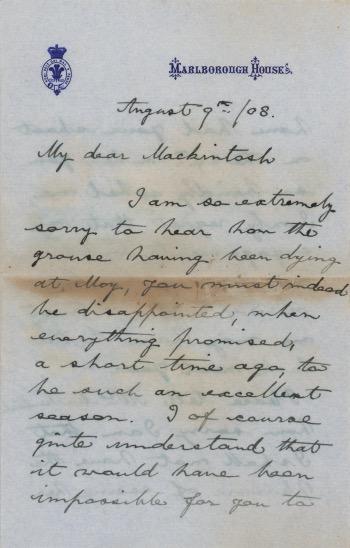 Marlborough House.
August 9th/08.
My dear Mackintosh
I am so extremely
sorry to hear how the
grouse having been dying
at Moy, you must indeed
be disappointed, when
everything promised,
a short time ago, to
be such an excellent
season. I of course
quite understand that
it would have been
impossible for you to